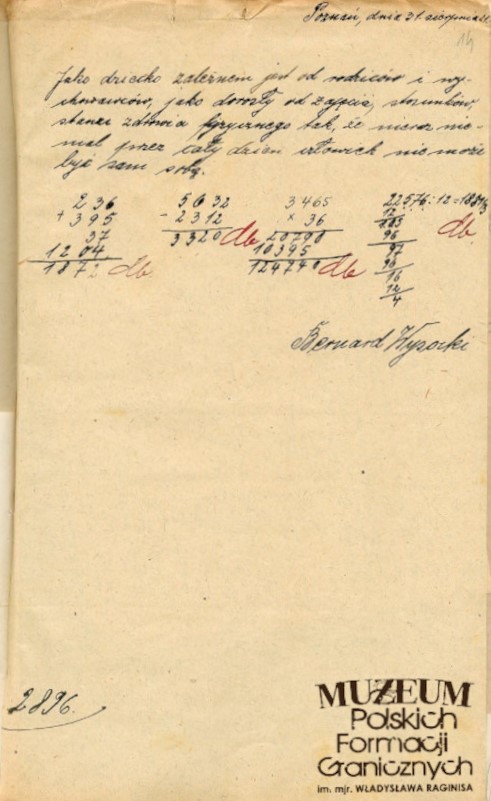 Poznań, dnia 31. sierpnia
14
Jako dziecko zależnem jest od rodziców i wy-
chowawców, jako dorosły od zajęcia, stosunków,
stanu zdrowia fizycznego tak, że nieraz nie-
mal przez cały dzień człowiek nie może
być sam sobą.
236 5632 3465 22576 : 12 = 1881 1/3
+ 395 - 2312 x 36 12
37 3320 db 20790 103 db
1204 10395 96
1872 db 124740 db 97
96
16
12
4
Bernard Wysocki
2896.
MUZEUM
Polskich
Formacji
Granicznych
im. mjr. WŁADYSŁAWA RAGINISA